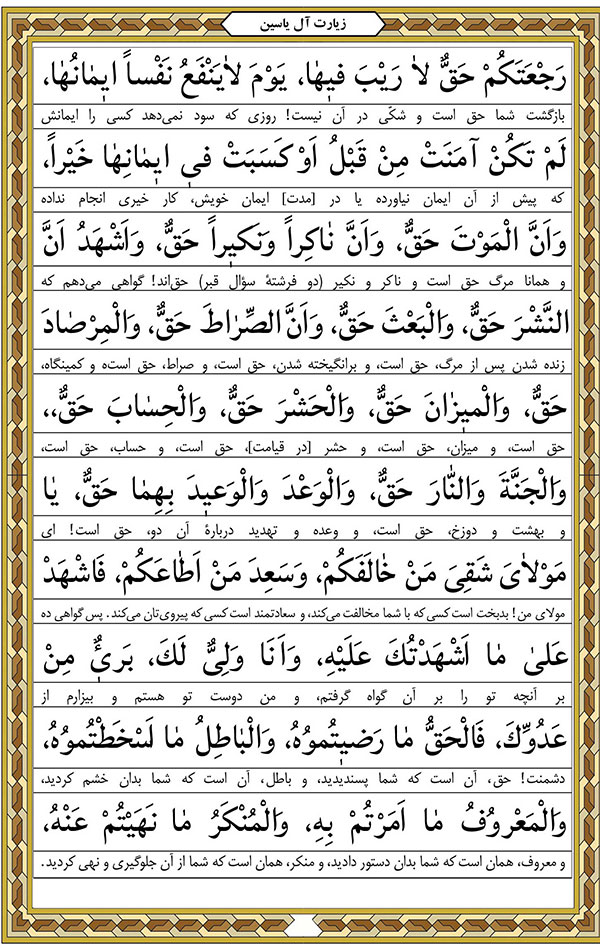 زیارت آل یاسین
رَجْعَتَكُمْ حَقٌّ لاٰ رَيْبَ فيهٰا، يَوْمَ لاٰيَنْفَعُ نَفْساً ايمٰانُهٰا،
بازگشت شما حق است و شکّی در آن نیست! روزی که سود نمی‌دهد کسی را ایمانش
لَمْ تَكُنْ آمَنَتْ مِنْ قَبْلُ اَوْ كَسَبَتْ في ايمٰانِهٰا خَيْراً،
که پیش از آن ایمان نیاورده یا در [مدت] ایمان خویش، کار خیری انجام نداده
وَاَنَّ الْمَوْتَ حَقٌّ، وَاَنَّ نٰاكِراً وَنَكيراً حَقٌّ، وَاَشْهَدُ اَنَّ
و همانا مرگ حق است و ناکر و نکیر (دو فرشتهٔ سؤال قبر) حق‌اند! گواهی می‌دهم که
النَّشْرَ حَقٌّ، وَالْبَعْثَ حَقٌّ، وَاَنَّ الصِّرٰاطَ حَقٌّ، وَالْمِرْصٰادَ
زنده شدن پس از مرگ، حق است، و برانگیخته شدن، حق است، و صراط، حق است‌ه و کمینگاه،
حَقٌّ، وَالْميزٰانَ حَقٌّ، وَالْحَشْرَ حَقٌّ، وَالْحِسٰابَ حَقٌّ،،
حق است، و میزان، حق است، و حشر [در قیامت]، حق است، و حساب، حق است،
وَالْجَنَّةَ وَالنّٰارَ حَقٌّ، وَالْوَعْدَ وَالْوَعيدَ بِهِمٰا حَقٌّ، يٰا
و بهشت و دوزخ، حق است، و وعده و تهدید دربارهٔ آن دو، حق است! ای
مَوْلاٰىَ شَقِىَ مَنْ خٰالَفَكُمْ، وَسَعِدَ مَنْ اَطٰاعَكُمْ، فَاشْهَدْ
مولای من! بدبخت است کسی که با شما مخالفت می‌کند، و سعادتمند است کسی که پیروی‌تان می‌کند. پس گواهی ده
عَلىٰ مٰا اَشْهَدْتُكَ عَلَيْهِ، وَاَنَا وَلِىٌّ لَكَ، بَرىٌٔ مِنْ
بر آنچه تو را بر آن گواه گرفتم، و من دوست تو هستم و بیزارم از
عَدُوِّكَ، فَالْحَقُّ مٰا رَضيتُموُهُ، وَالْبٰاطِلُ مٰا اَسْخَطْتُموُهُ،
دشمنت! حق، آن است که شما پسندیدید، و باطل، آن است که شما بدان خشم کردید،
وَالْمَعْروُفُ مٰا اَمَرْتُمْ بِهِ، وَالْمُنْكَرُ مٰا نَهَيْتُمْ عَنْهُ،
و معروف، همان است که شما بدان دستور دادید، و منکر، همان است که شما از آن جلوگیری و نهی کردید.